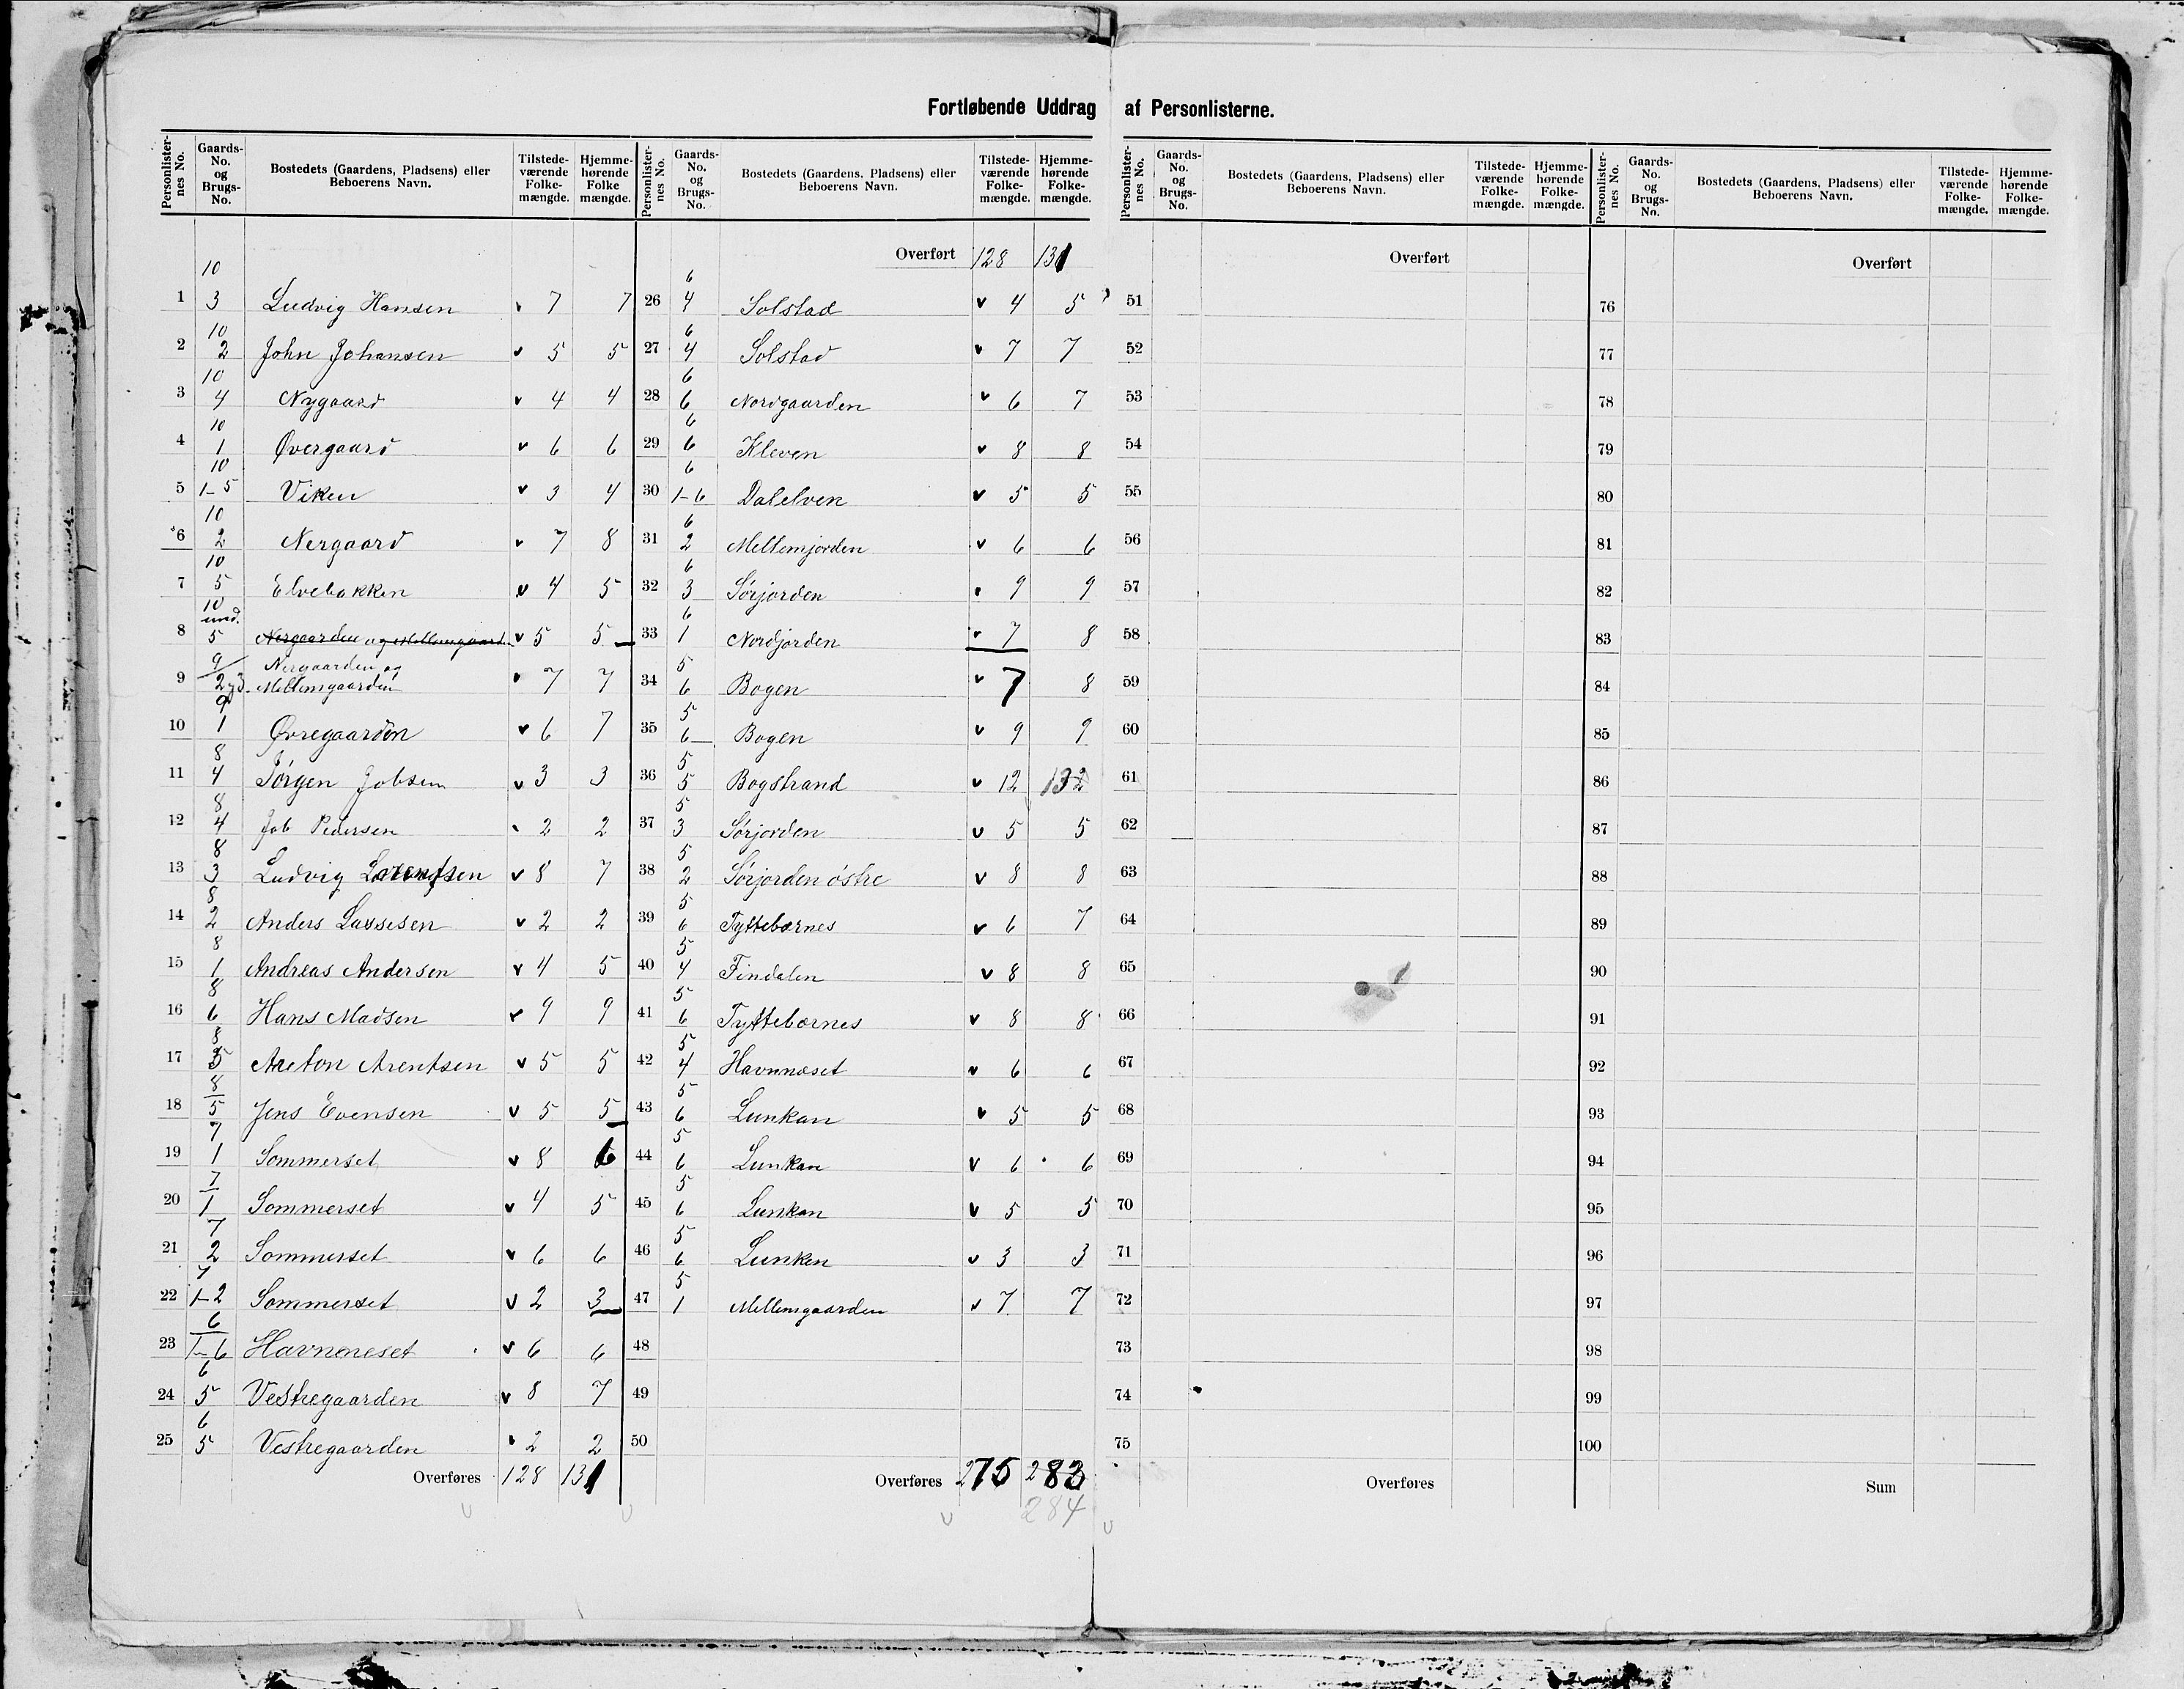 Fortløbende Uddrag af Personlisterne.
Personlisternes No. Gaards-No. og Brugs-No. Bostedets (Gaardens, Pladsens) eller Beboerens Navn. Tilstedeværende Folkemængde. Hjemmehørende Folkemængde.
1 10 3 Ludvig Hansen v 7 7
2 10 2 John Johansen v 5 5
3 10 4 Nygaard v 4 4
4 10 1 Øvergaard v 6 6
5 10 1-5 Viken v 3 4
*6 10 2 Nergaard v 7 8
7 10 5 Elvebakken v 4 5
8 10 und. 5 Nergaarden og Mellemgaarden v 5 5
9 9/2 3. Nergaarden og Mellemgaarden 7 7
10 9 1 Øvregaarden v 6 7
11 8 4 Jørgen Jobsen v 3 3
12 8 4 Job Pedersen 2 2
13 8 3 Ludvig Lorentsen v 8 7
14 8 2 Anders Lassesen v 2 2
15 8 1 Andreas Andersen v 4 5
16 8 6 Hans Madsen v 9 9
17 8 5 Arentsen v 5 5
18 8/5 Jens Evensen v 5 5
19 7 1 Sommerset v 8 6
20 7/1 Sommerset v 4 5
21 7 2 Sommerset v 6 6
22 7 1-2 Sommerset v 2 3
23 6/1-6 Havneneset v 6 6
24 6 5 Vestregaarden v 8 7
25 6 5 Vestregaarden 2 2
Overføres 128 131
Personlisternes No. Gaards-No. og Brugs-No. Bostedets (Gaardens, Pladsens) eller Beboerens Navn. Tilstedeværende Folkemængde. Hjemmehørende Folkemængde.
Overført 128 131
26 6 4 Solstad v 4 5
27 6 4 Solstad v 7 7
28 6 6 Nordgaarden v 6 7
29 6 6 Kleven v 8 8
30 6 1-6 Dalelven v 5 5
31 6 2 Mellemjorden v 6 6
32 6 3 Sørjorden 9 9
33 6 1 Nordjorden v 7 8
34 5 6 Bogen v 7 8
35 5 6 Bogen v 9 9
36 5 5 Bogstrand v 12 13 2
37 5 3 Sørjorden v 5 5
38 5 2 Sørjorden østre v 8 8
39 5 6 Tyttebornes v 6 7
40 5 4 Findalen v 8 8
41 5 6 Tyttebornes v 8 8
42 5 4 Havnnæset v 6 6
43 5 6 Lunkan v 5 5
44 5 6 Lunkan v 6 6
45 5 6 Lunkan v 5 5
46 5 6 Lunken v 3 3
47 5 1 Mellemgaarden v 7 7
48
49
50
Overføres 275 283
284
Personlisternes No. Gaards-No. og Brugs-No. Bostedets (Gaardens, Pladsens) eller Beboerens Navn. Tilstedeværende Folkemængde. Hjemmehørende Folkemængde.
Overført
51
52
53
54
55
56
57
58
59
60
61
62
63
64
65
66
67
68
69
70
71
72
73
74
75
Overføres
Personlisternes No. Gaards-No. og Brugs-No. Bostedets (Gaardens, Pladsens) eller Beboerens Navn. Tilstedeværende Folkemængde. Hjemmehørende Folkemængde.
Overført
76
77
78
79
80
81
82
83
84
85
86
87
88
89
90
91
92
93
94
95
96
97
98
99
100
Sum